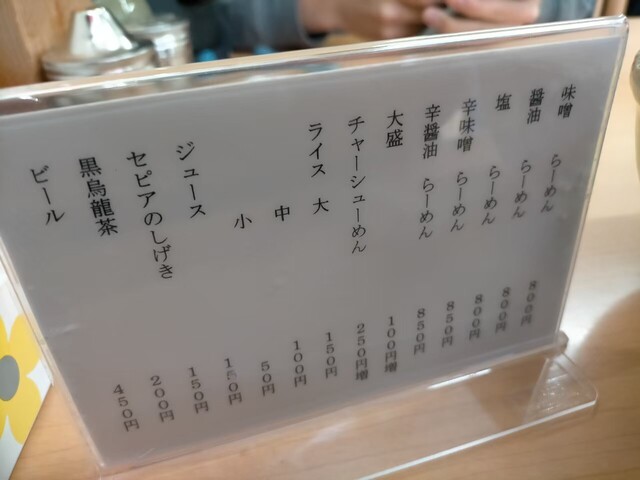 味噌 らーめん 800円
醤油 らーめん 800円
塩 らーめん 800円
辛味噌 らーめん 850円
辛醤油 らーめん 850円
大盛 100円増
チャーシューめん 250円増
ライス 大 150円
中 100円
小 50円
ジュース 150円
セピアのしげき 150円
黒烏龍茶 200円
ビール 450円